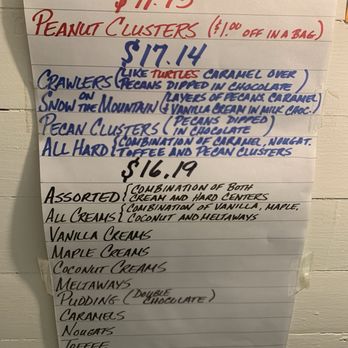 PEANUT CLUSTERS ($1.00 OFF IN A BAG)
$17.14
CRAWLERS (LIKE TURTLES CARAMEL OVER PECANS DIPPED IN CHOCOLATE)
SNOW ON THE MOUNTAIN (LAYERS OF PECANS, CARAMEL & VANILLA CREAM IN MILK CHOC.)
PECAN CLUSTERS (PECANS DIPPED IN CHOCOLATE)
ALL HARD {COMBINATION OF CARAMEL, NOUGAT, TOFFEE AND PECAN CLUSTERS
$16.19
ASSORTED {COMBINATION OF BOTH CREAM AND HARD CENTERS
ALL CREAMS {COMBINATION OF VANILLA, MAPLE, COCONUT AND MELTAWAYS
VANILLA CREAMS
MAPLE CREAMS
COCONUT CREAMS
MELTAWAYS
PUDDING (DOUBLE CHOCOLATE)
CARAMELS
NOUGATS
TOFFEE